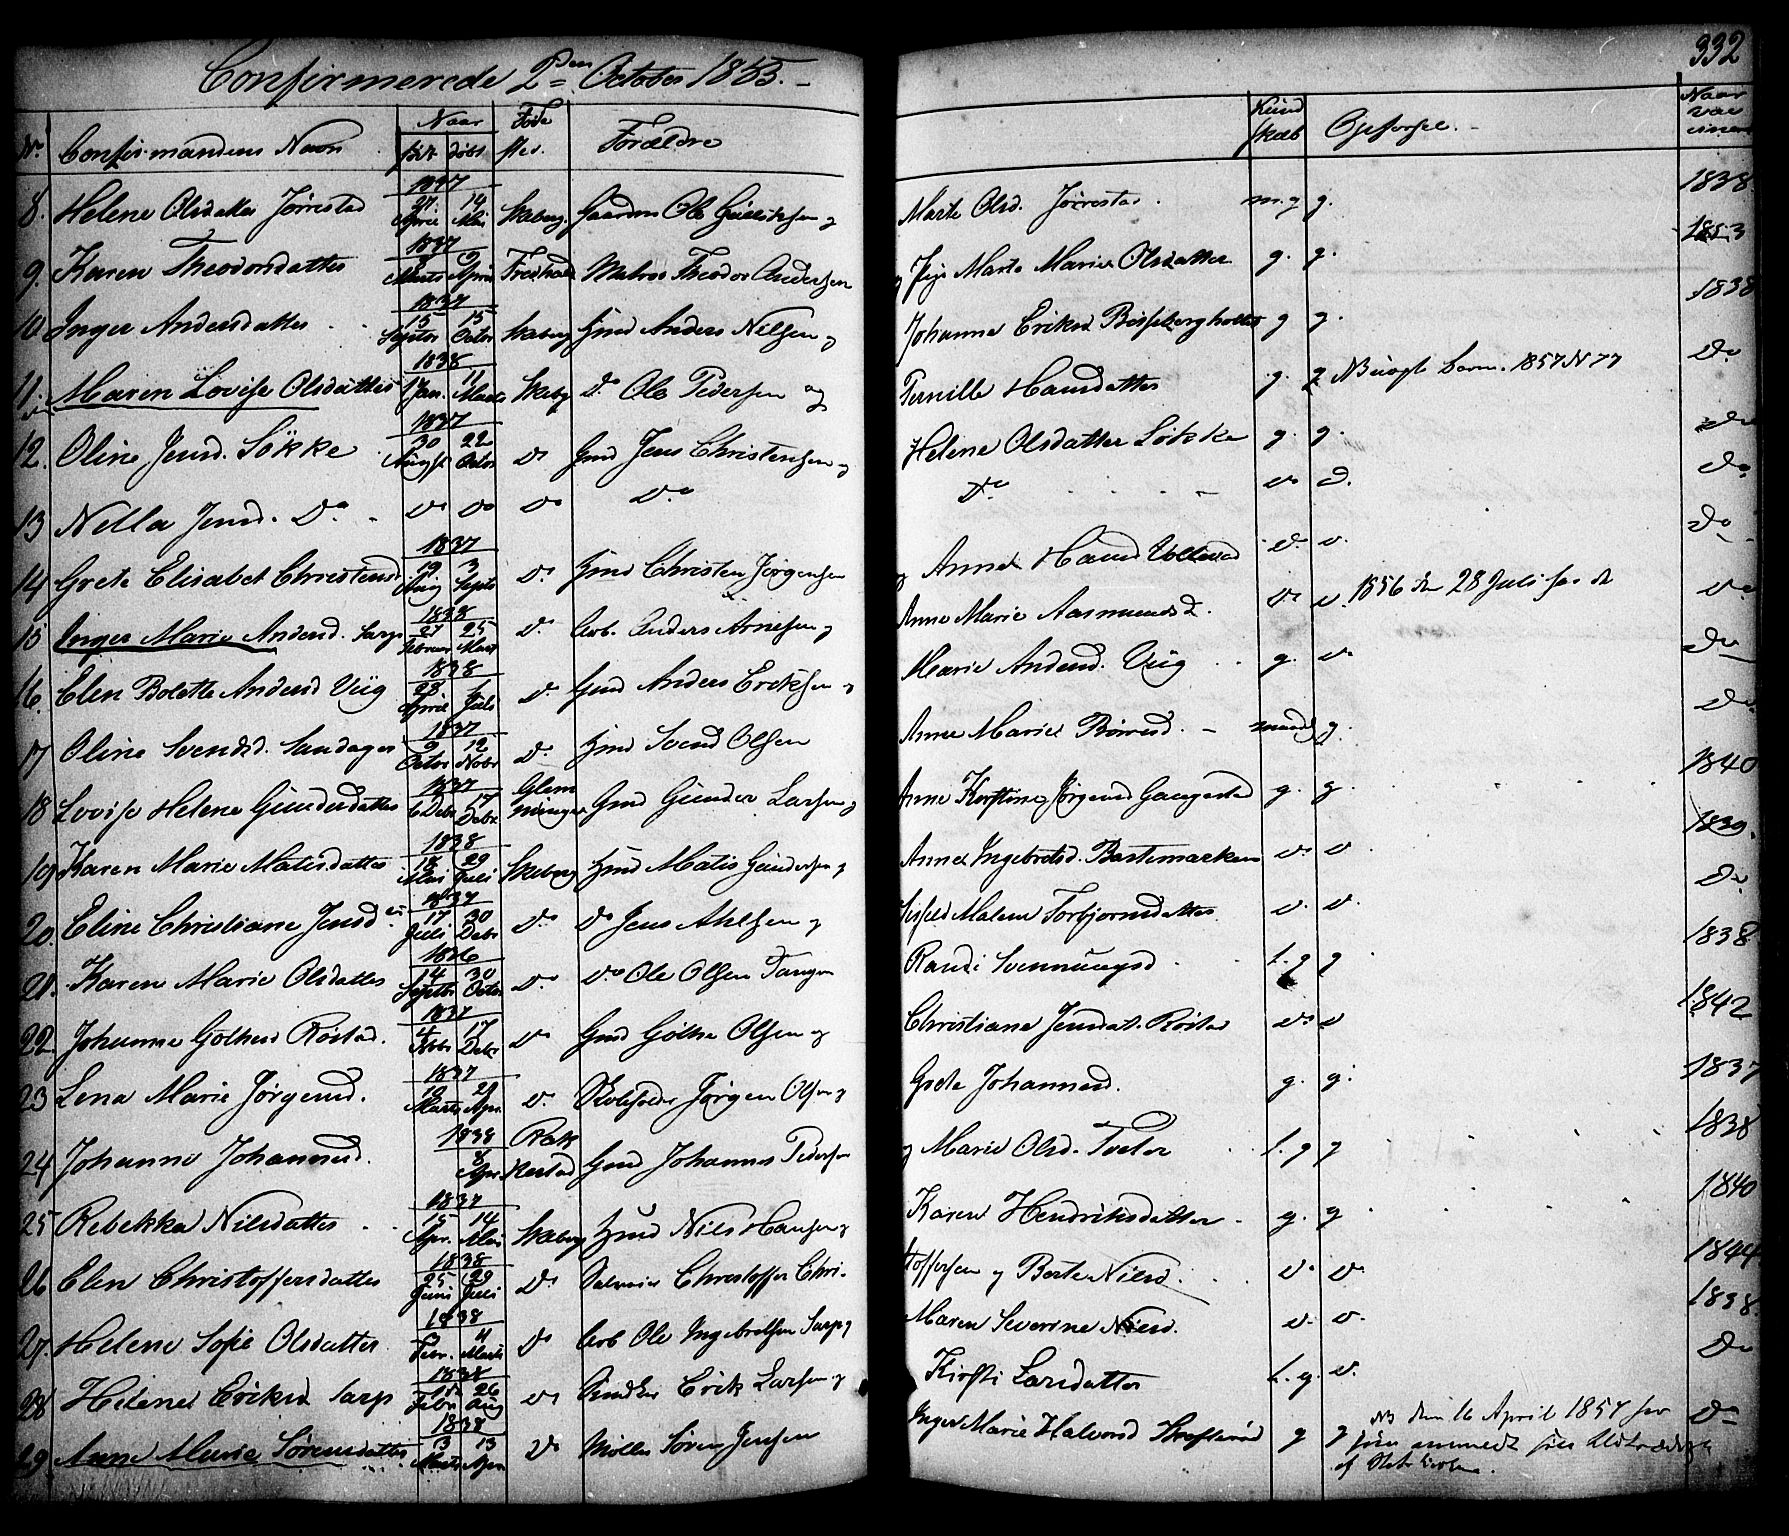 332
Confirmerede 2den October 1853.
No. Confirmandens Navn Naar født døbt Føde sted Forældre Kundskab Opførsel Naar vaccineret
8. Helene Olsdatter Jørrestad 1837 27 April 14 Mai Skeberg. Gaardm Ole Gulliksen og Marte Olsd. Jørrestad m.g g. 1838
9. Karen Theodorsdatter 1837 Marts April Fredhald Matros Theodor Andersen og Pige Marte Marie Olsdatter g. g. 1853
10 Inger Andersdatter 1837 15 Septbr 15 Octbr Skeberg Hmd Anders Nilsen og Johanne Eriksd g g. 1838
11. Maren Lovise Olsdatter 1838 17 Jan. 11 Marts Skebg Do Ole Pedersen og Pernille Hansdatter g. g 1857 N 77 Do
12. Oline Jensd. Løkke 1837 30 August 22 Octbr Do Gmd Jens Christensen og Helene Olsdatter Løkke g. g. Do
13 Nella Jensd. Do Do Do Do Do Do Do D. Do
14 Grete Elisabet Christensd 1837 19 Aug 3 Septbr Do Hmd Christen Jørgensen og Anne Hansd D. D. Do
15 Inger Marie Andersd. Sarp 1838 27 Februar 25 Marts Do Arb. Anders Arnesen og Anne Marie Aasmundsd. Do D. 1856 den 28 Juli Do
16. Elen Bolette Andersd Viig 1838 28 April 1 Juli Do Gmd Anders Eriksen og Marie Andersd. Viig g. D. Do
17 Oline Svendsd. Sandager 1837 9 Octbr 12 Novbr Do Hmd Svend Olsen Anne Marie g. Do
18 Lovise Helene Gundersdatter 1837 6 Debr 17 Debr Glemminge Gmd Gunder Larsen og Anne Kirstine Jørgensd g. g. 1840
19 Karen Marie Matisdatter 1838 18 Mai 29 Juli Skeberg Hmd Matis Gundersen og Anne Ingebretsd. D. D 1839.
20. Eline Christiane Jensd 1837 17 Juli 30 Debr Do Do Jens Ahlsen og Malene Torbjornsdatter D. D. Do
21. Karen Marie Olsdatter 1836 14 Septbr 30 Octbr Do Do Ole Olsen Tangen Randi Svennungsd t. g g 1838
22. Johanne Gølhesd Røstad. 1837 4 Novbr 17 Debr Do Gmd Gølhe Olsen og Christiane Jensdat. Røstad Do D 1842
23 Lena Marie Jørgensd. 1837 19 Marts 29 Apr. D. Skoleholder Jørgen Olsen og Grete Johannesd. g. g. 1837
24 Johanne Johannesd. 1838 8 Apr. Rakkestad Gmd Johannes Pedersen og Marie Olsd. Tveter t. g g 1838
25 Rebekka Nilsdatter 1837 15 Apr. 14 Mai Skeberg Hmd Nils Hansen og Karen Hendriksdatter g. g 1840
26 Elen Christoffersdatter 1838 25 Juni 29 Juli Do Christoffer Christoffersen og Berte Nilsd. D. D. 1844
27. Helene Sofie Olsdatter 1838 Febr. 4 Marts Do Arb Ole Ingebretsen Sarp og Maren Severine Nilsd. D. D. 1838
28 Helene Eriksd Sarp 1838 Febr 26 Aug Do Erik Larsen og Kirsti Larsdatter t. g. D. Do
29 Anne Marie Sørensdatter 1838 13 Marts 13 Apr. Do Møller Søren Jensen Inger Marie Halvorsd g g NB den 16 April 1857 Do